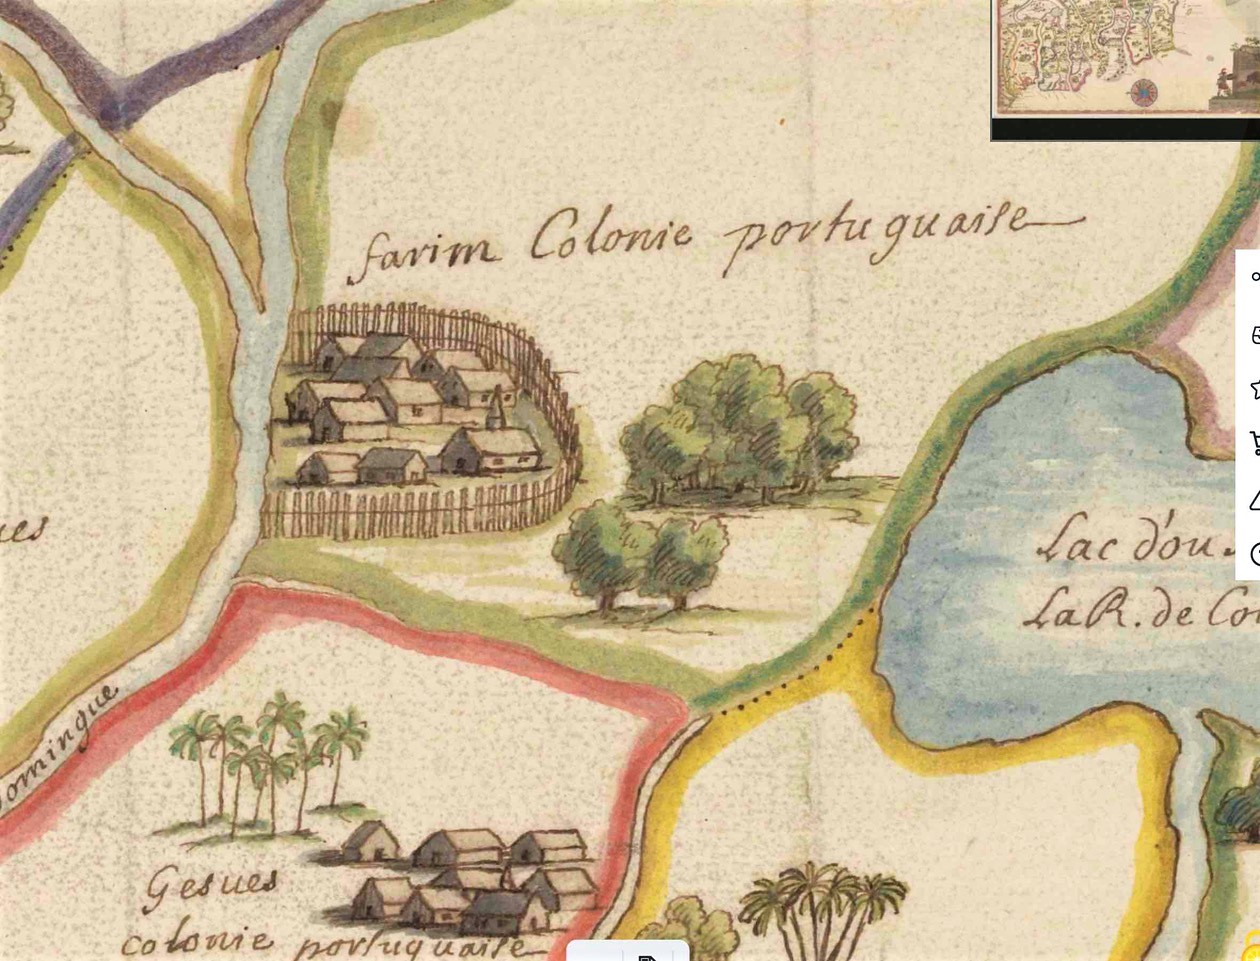 farim Colonie portuguaise
ues
Lac d'ou
LaR. de Co
omingue
Gesues
colonie portuguaise